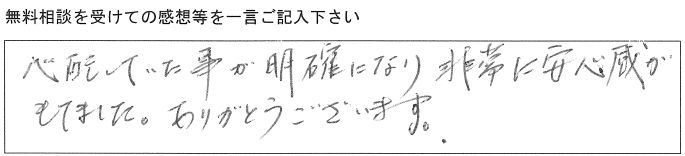 無料相談を受けての感想等を一言ご記入下さい
心配していた事が明確になり非常に安心感が
もてました。ありがとうございます。